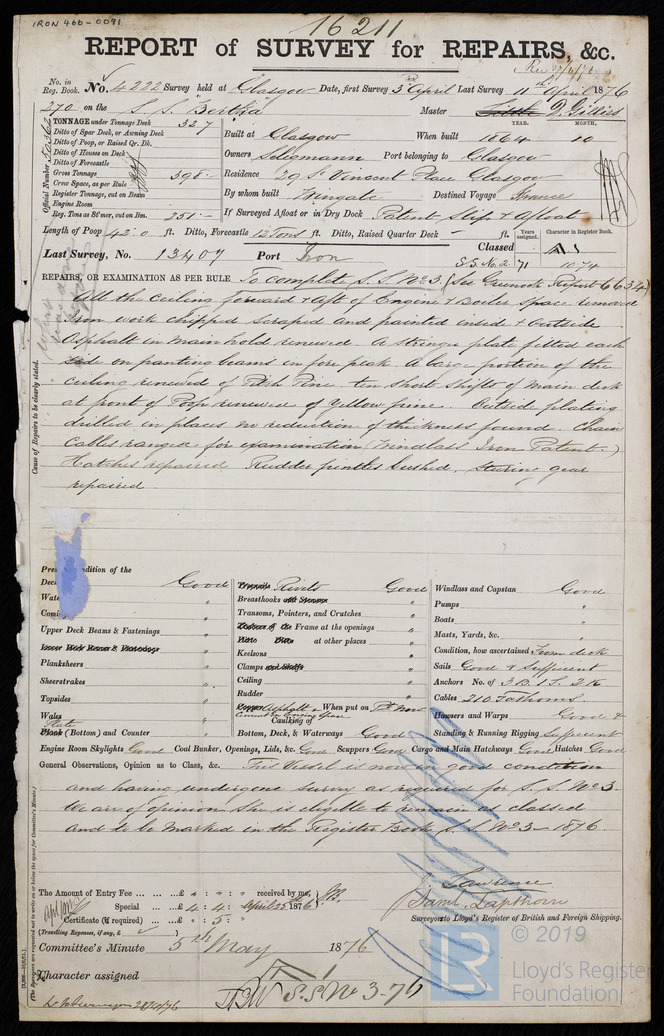 IRON 460-0091
16211
REPORT of SURVEY for REPAIRS, &c.
No. in Reg. Book. No. 4222 Survey held at Glasgow Date, first Survey 3rd April Last Survey 11th April 1876
270 on the S. S. "Bertha" Master D. Gillies
TONNAGE under Tonnage Deck 327
Ditto of Spar Deck, or Awning Deck
Ditto of Poop, or Raised Qr. Dk.
Ditto of Houses on Deck
Ditto of Forecastle
Gross Tonnage 396
Crew Space, as per Rule
Register Tonnage, cut on Beam
Engine Room
Reg. Tons as St'mer, cut on Bm. 251
Official Number
YEAR. MONTH.
Built at Glasgow When built 1864 10
Owners Seligmann Port belonging to Glasgow
Residence 29 St Vincent Place Glasgow
By whom built Wingate Destined Voyage France
If Surveyed Afloat or in Dry Dock Patent Slip & Afloat
Length of Poop 42.0 ft. Ditto, Forecastle 12 Tons ft. Ditto, Raised Quarter Deck - ft. Years assigned. Character in Register Book.
Last Survey, No. 13407 Port Iron Classed A1
S.S. No. 2. 71 10.74
REPAIRS, OR EXAMINATION AS PER RULE To complete S. S. No 3. (See Greenock Report 6634)
All the Ceiling forward & Aft of Engine & Boiler space removed
Iron work chipped scraped and painted inside & outside
Asphalt in Main hold renewed. A stringer plate fitted each
side on panting beams in fore peak. A large portion of the
ceiling renewed of Pitch Pine. ten short shifts of Main deck
at front of Poop renewed of Yellow pine. Outside plating
drilled in places no reduction of thickness found. Chain
Cables ranged for examination (Windlass Iron Patent.)
Hatches repaired Rudder pintles bushed. Steering gear
repaired
Cause of Repairs to be clearly stated.
Present Condition of the
Deck Good
Upper Deck Beams & Fastenings "
Lower Deck Beams & Fastenings
Planksheers "
Sheerstrakes "
Topsides "
Wales "
Plate
Plank (Bottom) and Counter "
Rivets Good
Breasthooks and Stems "
Transoms, Pointers, and Crutches "
Frame at the openings "
Ditto Ditto at other places "
Keelsons "
Clamps and Shelfs "
Ceiling "
Rudder "
Copper Asphalt When put on Pt. New
Caulking of
Bottom, Deck, & Waterways Good
Windlass and Capstan Good
Pumps "
Boats "
Masts, Yards, &c. "
Condition, how ascertained From deck
Sails Good & Sufficient
Anchors No. of 3 B. 1 S. 2 K
Cables 210 Fathoms.
Hawsers and Warps Good &
Standing & Running Rigging Sufficient
Engine Room Skylights Good Coal Bunker, Openings, Lids, &c. Good Scuppers Good Cargo and Main Hatchways Good Hatches Good
General Observations, Opinion as to Class, &c. This Vessel is now in good condition
and having undergone Survey as required for S. S. No 3.
We are of opinion She is eligible to remain as classed
and to be Marked in the Register Book S. S. No 3 - 1876.
The Amount of Entry Fee ... £ " : " : " received by me,
Special ... £ 4 : 4 : April 25th 1876
Certificate (if required) ... £ " : 5 :
(Travelling Expenses, if any, £ )
Lawrence
Saml Lapthorn
Surveyors to Lloyd's Register of British and Foreign Shipping.
Committee's Minute 5th May 1876
Character assigned
S. S No 3-76
© 2019
LR
Lloyd's Register
Foundation